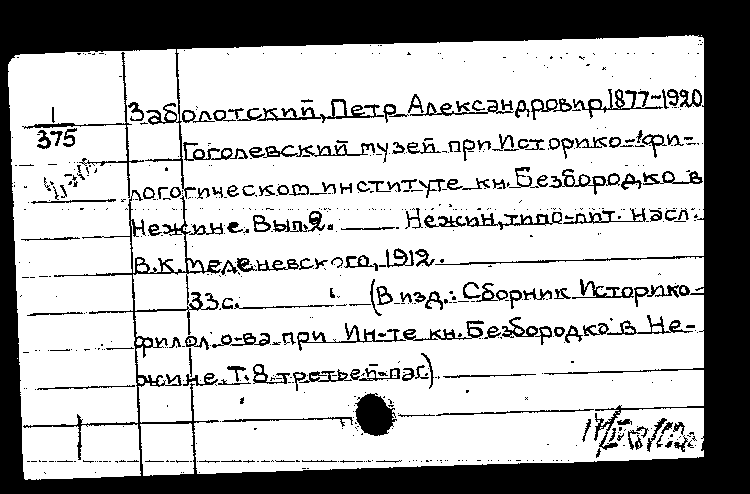 Заболотский, Петр Александрович, 1877-1920
1
375
Гоголевский музей при Историко-фи-
логогическом институте кн. Безбородко в
Нежине. Вып. 2. Нежин, типо-лит. насл.
В.К. Меленевского, 1912.
33 с. (В изд.: Сборник Историко-
филол. о-ва при Ин-те кн. Безбородко в Не-
жине. Т. 8